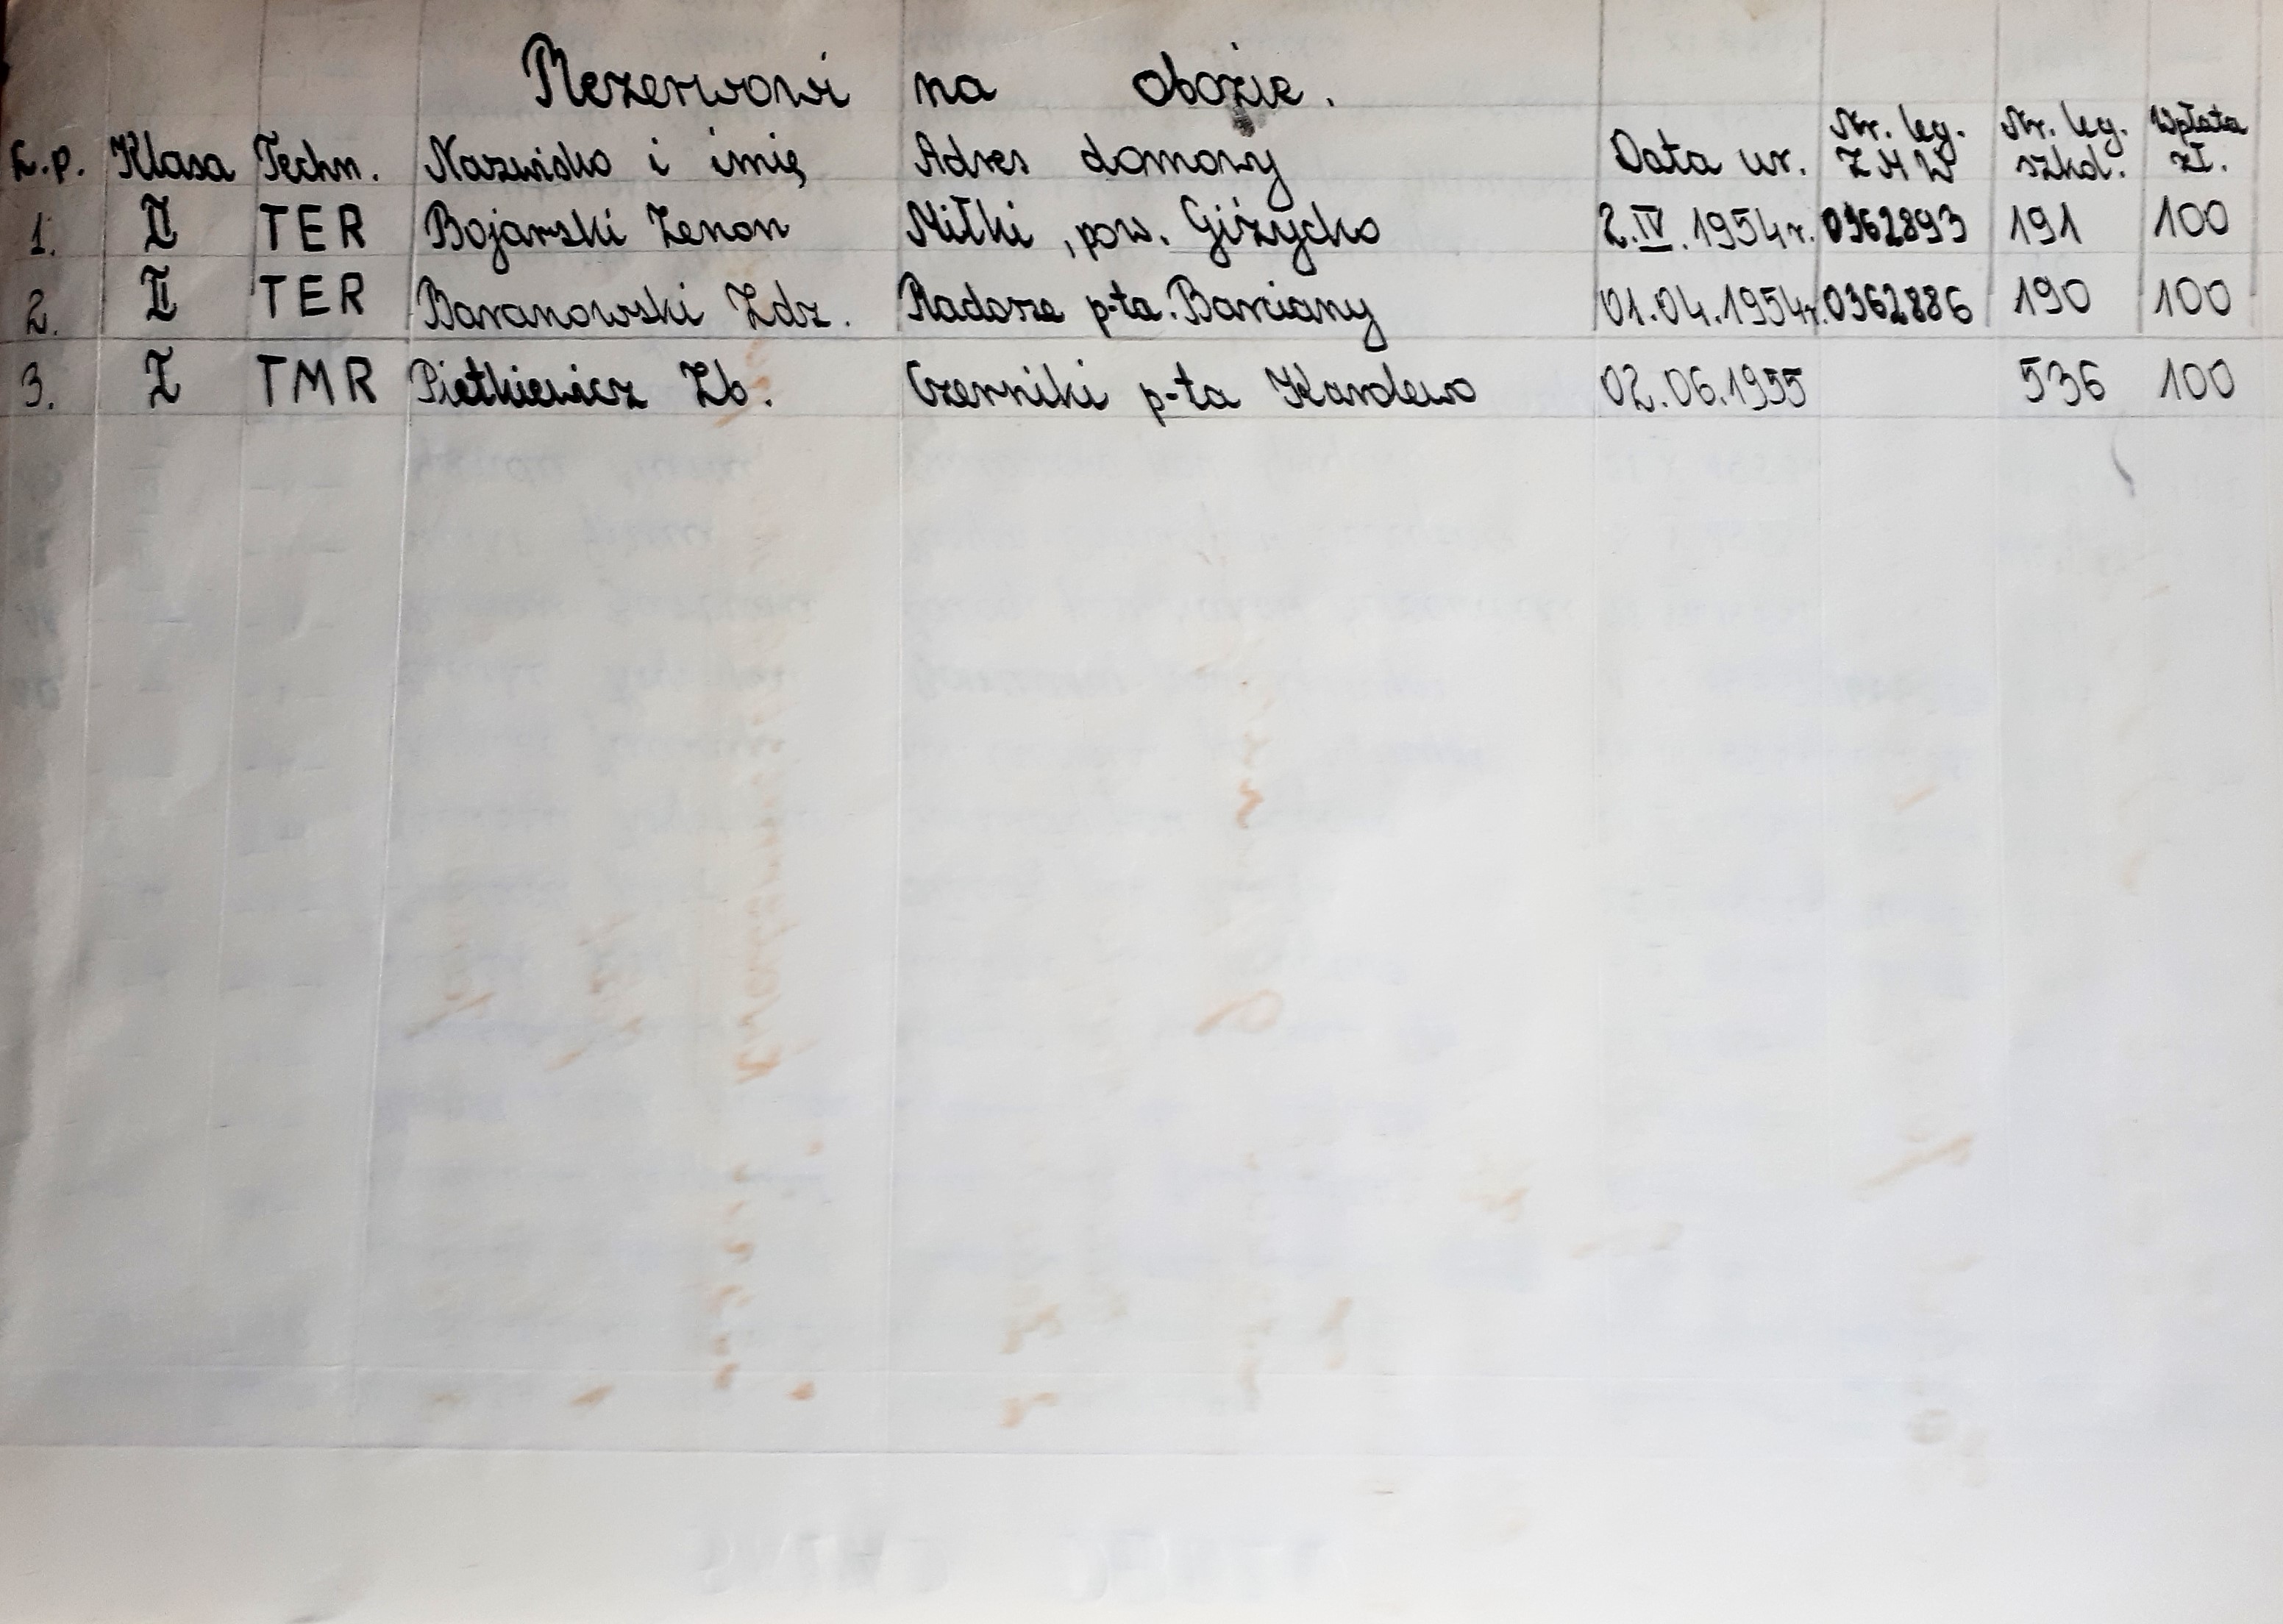 Rezerwowi na obozie.
L.p. Klasa Techn. Nazwisko i imię Adres domowy Data ur. Nr. leg. ZMW Nr. leg. szkol. Wpłata zł.
1. II TER Bojarski Zenon Miłki, pow. Giżycko 2.IV.1954r. 0362893 191 100
2. II TER Baranowski Zdz. Radosze p-ta. Barciany 01.04.1954r. 0362886 190 100
3. I TMR Pietkiewicz Zb. Czerniki p-ta Karolewo 02.06.1955 536 100